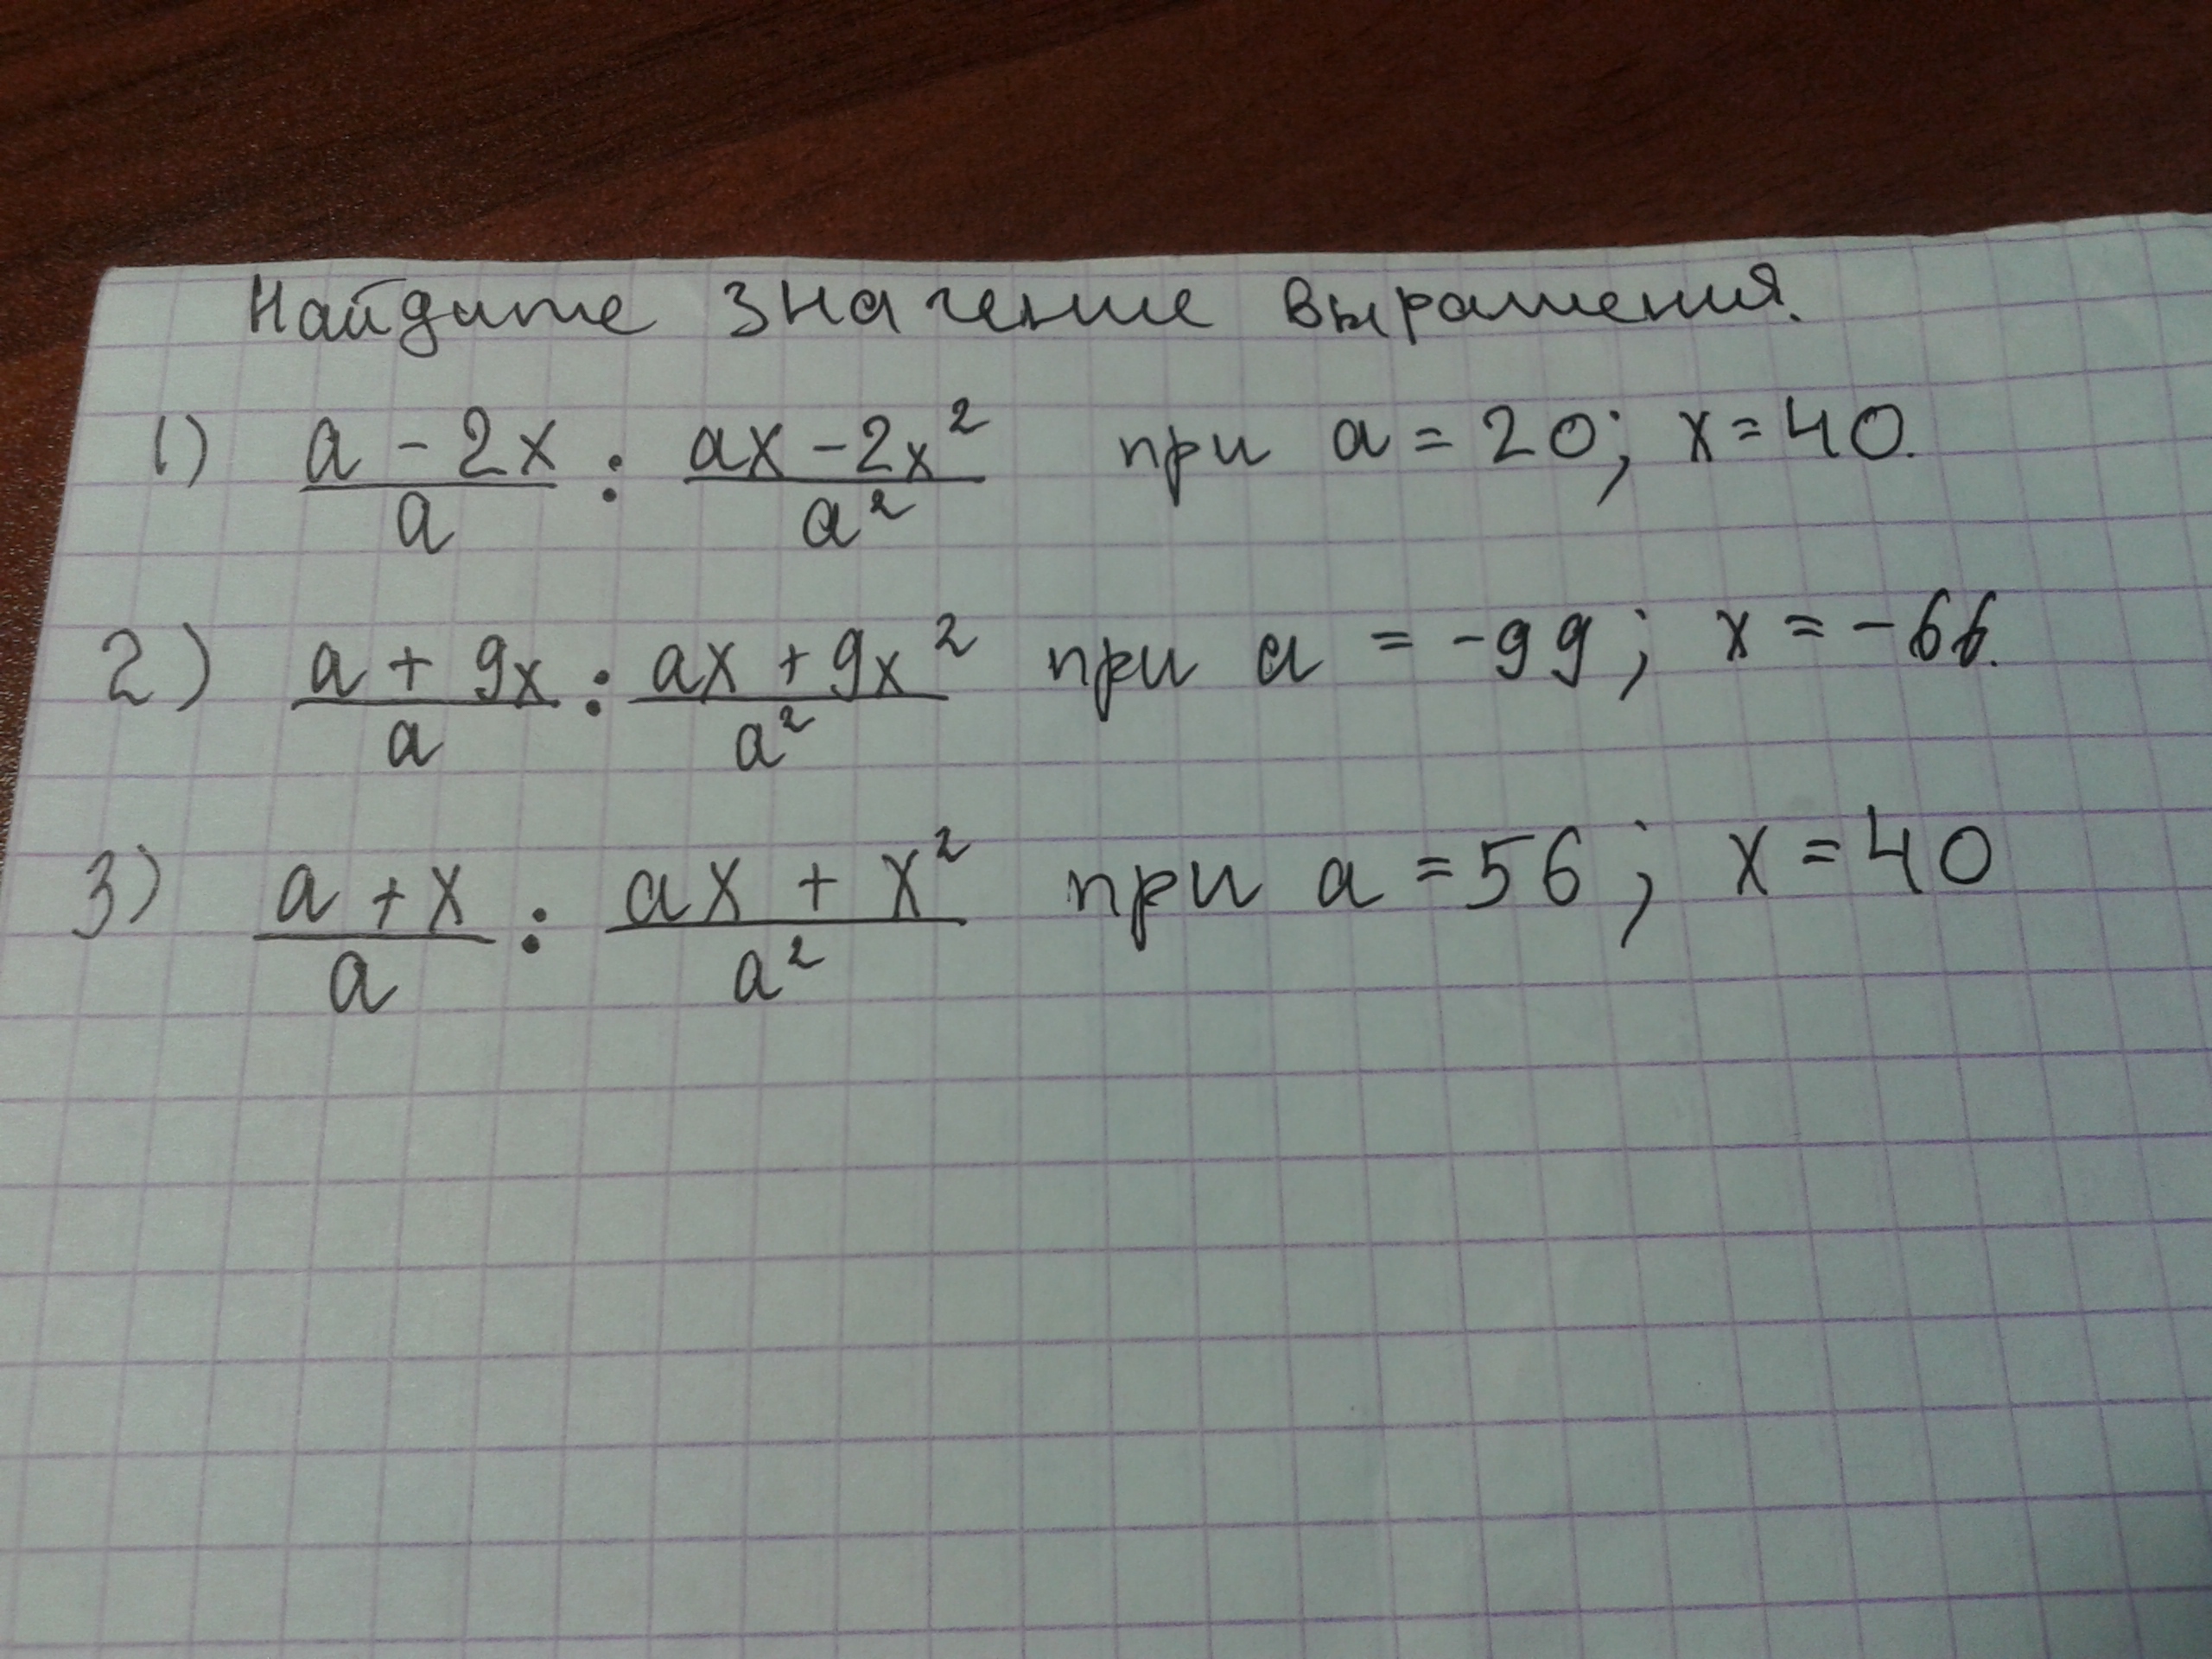 Найдите значение выражения.
1) (a - 2x)/a : (ax - 2x²)/a² при a = 20; x = 40.
2) (a + 9x)/a : (ax + 9x²)/a² при a = -99; x = -66.
3) (a + x)/a : (ax + x²)/a² при a = 56; x = 40